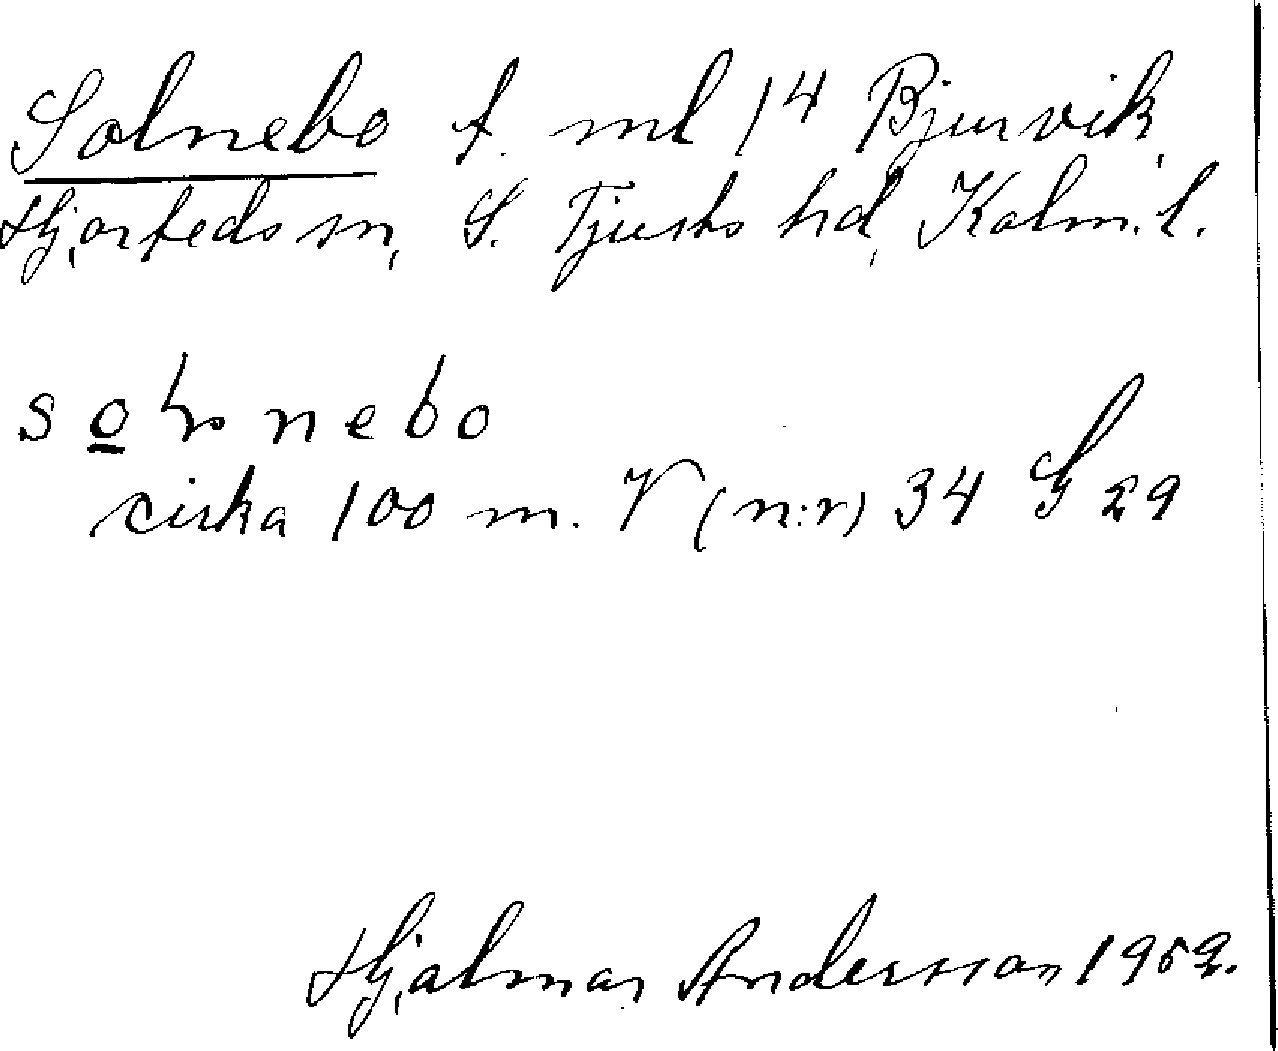 Solnebo t. ml 14 Bjurvik,
Hjorteds sn, S. Tjusts hd, Kalm. l.
nebo
cirka 100 m. V (n:r) 34 S 29
Hjalmar Andersson 1959.